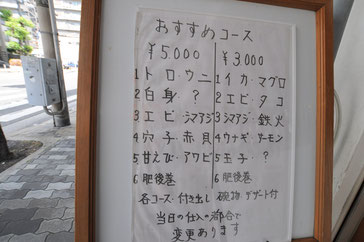 おすすめコース
¥5,000 ¥3,000
1 トロ・ウニ 1 イカ・マグロ
2 白身・? 2 エビ・タコ
3 エビ・シマアジ 3 シマアジ・鉄火
4 穴子・赤貝 4 ウナギ・サーモン
5 甘えび・アワビ 5 玉子・?
6 肥後巻 6 肥後巻
各コース・付き出し 碗物 デザート付
当日の仕入の都合で
変更あります